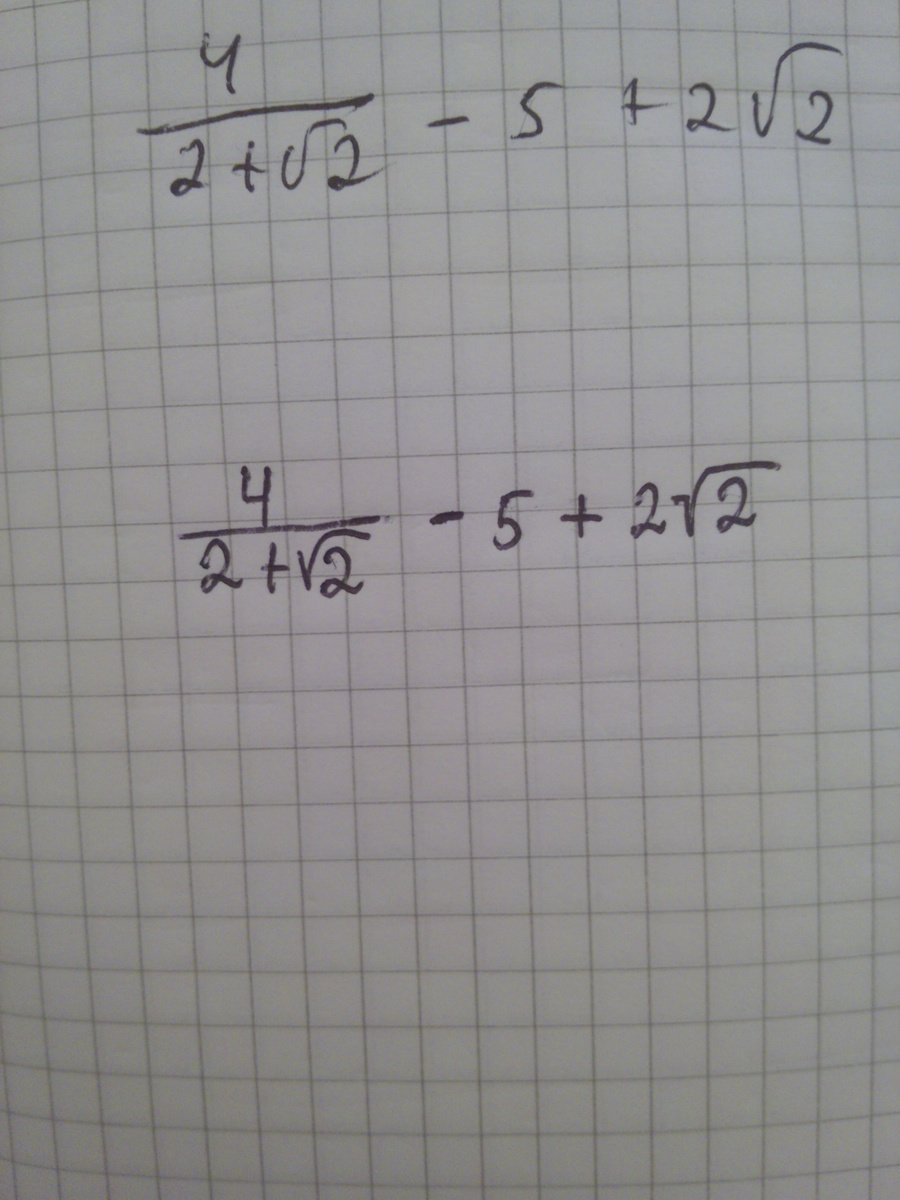 4/(2+√2) - 5 + 2√2
4/(2+√2) - 5 + 2√2